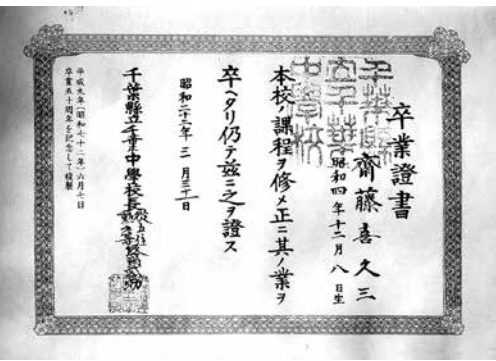 卒業證書
齋藤喜久三
昭和四年十二月八日生
本校ノ課程ヲ修メ正ニ其ノ業ヲ
卒ヘタリ仍テ茲ニ之ヲ證ス
昭和二十二年三月三十一日
千葉縣立千葉中學校長
平成九年(昭和七十二年)六月七日
卒業五十周年を記念して複製